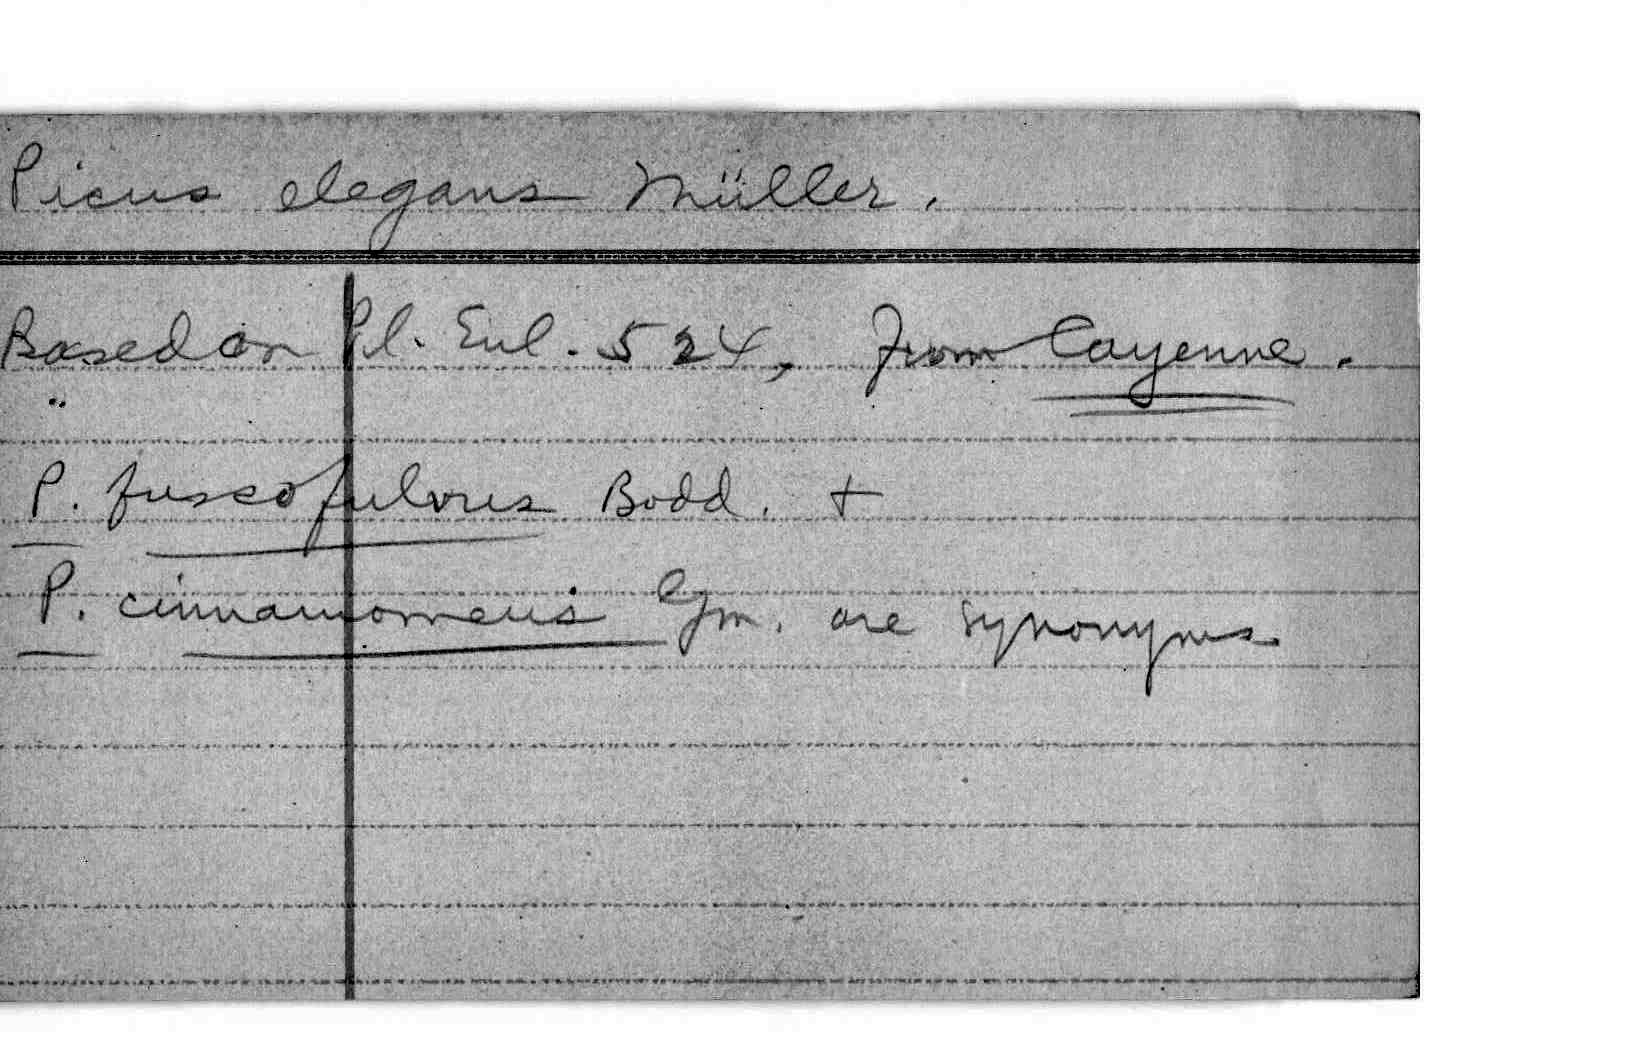 Picus elegans Müller.
Based on Pl. Enl. 524, from Cayenne.
"
P. fuscofulvus Bodd. +
P. cinnamomeus Gm. are synonyms